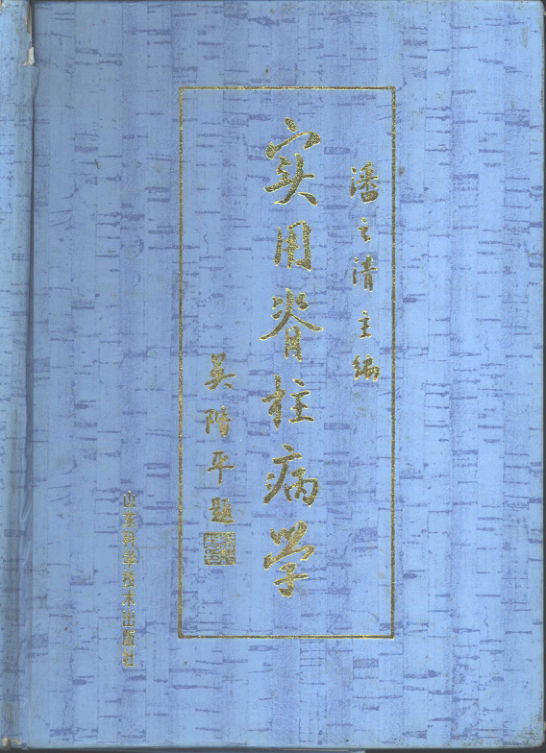 潘之清主编
实用脊柱病学
吴阶平题
山东科学技术出版社